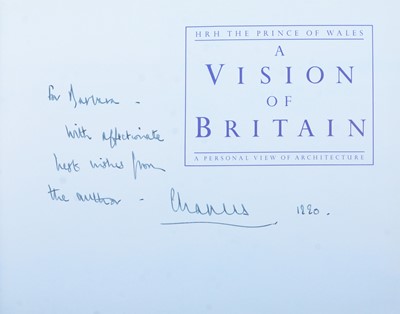 HRH THE PRINCE OF WALES
A
VISION
OF
BRITAIN
A PERSONAL VIEW OF ARCHITECTURE
For Barbara -
with affectionate
best wishes from
the author - Charles 1990.